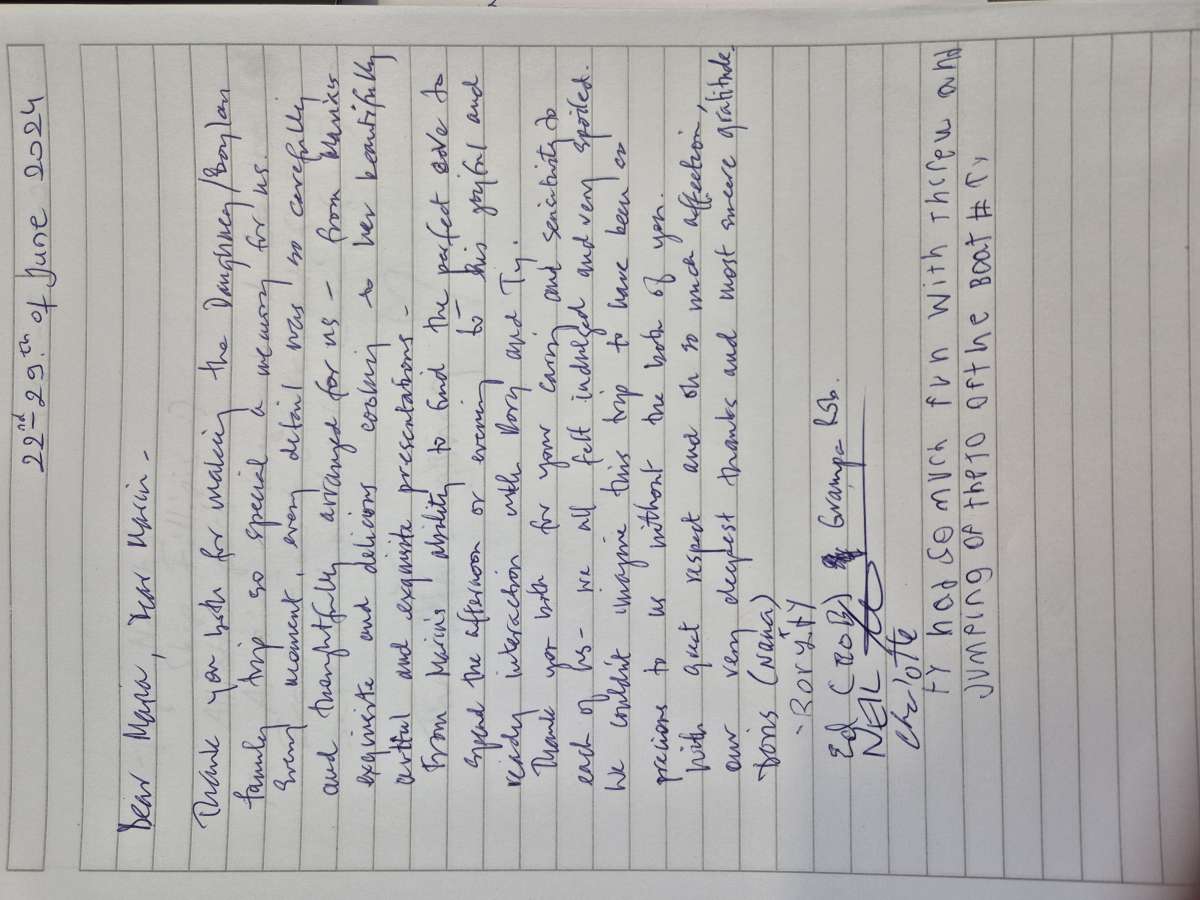 22nd - 29.th of June 2024
Dear Maria, Dear Marin.
Thank you both for making the Daughney/Boylan
family trip so special a memory for us.
Every moment, every detail was so carefully
and thoughtfully arranged for us – from Maria's
exquisite and delicious cooking to her beautifully
artful and exquisite presentations –
From Marin's ability to find the perfect cove to
spend the afternoon or evening to – his joyful and
ready interaction with Rory and Ty.
Thank you both for your caring and sensitivity to
each of us – we all felt indulged and very spoiled.
We couldn't imagine this trip to have been so
precious to us without the both of you.
With great respect and oh so much affection,
our very deepest thanks and most sincere gratitude.
Doris (Nana)
- Rory, TY
Ed (COB) Grampa
NEIL
Charlotte
TY had so much fun with there and
jumping of the of the boat # Ty